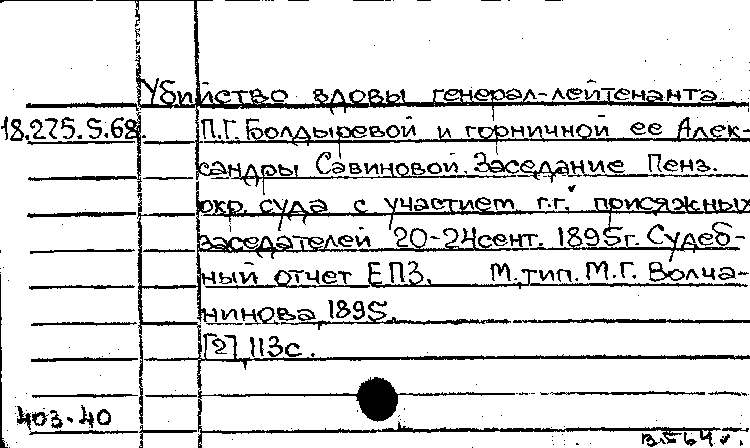 Убийство вдовы генерал-лейтенанта
18.275.5.68. П.Г. Болдыревой и горничной ее Алек-
сандры Савиновой. Заседание Пенз.
окр. суда с участием г.г. присяжных
заседателей 20-24 сент. 1895г. Судеб-
ный отчет ЕПЗ. М., тип. М.Г. Волча-
нинова, 1895.
[2], 113с.
403-40